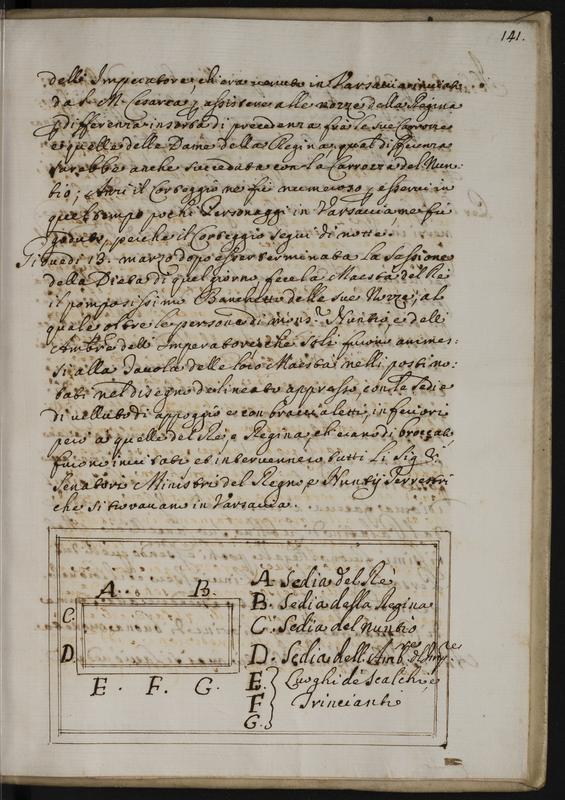 141.
dell' Imperatore, ch'era venuto in Varsavia inviato
da S. M. Cesarea p assistere alle nozze della Regina
p differenza insorta di precedenza frà le sue Carrozze
e quelle delle Dame della Regina, qual differenza
sarebbe anche succeduta con la Carrozza del Nun-
tio; Anzi il Corteggio ne fù numeroso, p esservi in
quel tempo pochi Personaggi in Varsavia ne fù
goduto, perche il Corteggio seguì di notte.
13. marzo dopo terminata la Sessione
della Dieta di quel giorno fece la Maestà del Rè
il pomposissimo Banchetto delle sue Nozze; al
quale oltre le persone di Mons.r Nuntio, e dell'
Amb.re dell' Imperatore che soli furno ammes-
si alla Tavola delle loro Maestà nelli posti no-
tati nel disegno delineato appresso, con le sedie
di velluto di appoggio e con braccialetti, inferiori
però a quelle del Rè, e Regina, ch'erano di broccato
furono invitati et intervennero tutti li Sig.ri
Senatori Ministri del Regno, e Nuntij Terrestri
che si trovavano in Varsavia.
A. B.
C.
D.
E. F. G.
A. Sedia del Rè
B. Sedia della Regina
C. Sedia del Nuntio
D. Sedia dell' Amb.re dell' Imp.re
E. Luoghi de Scalchi, e
F Trincianti
G.